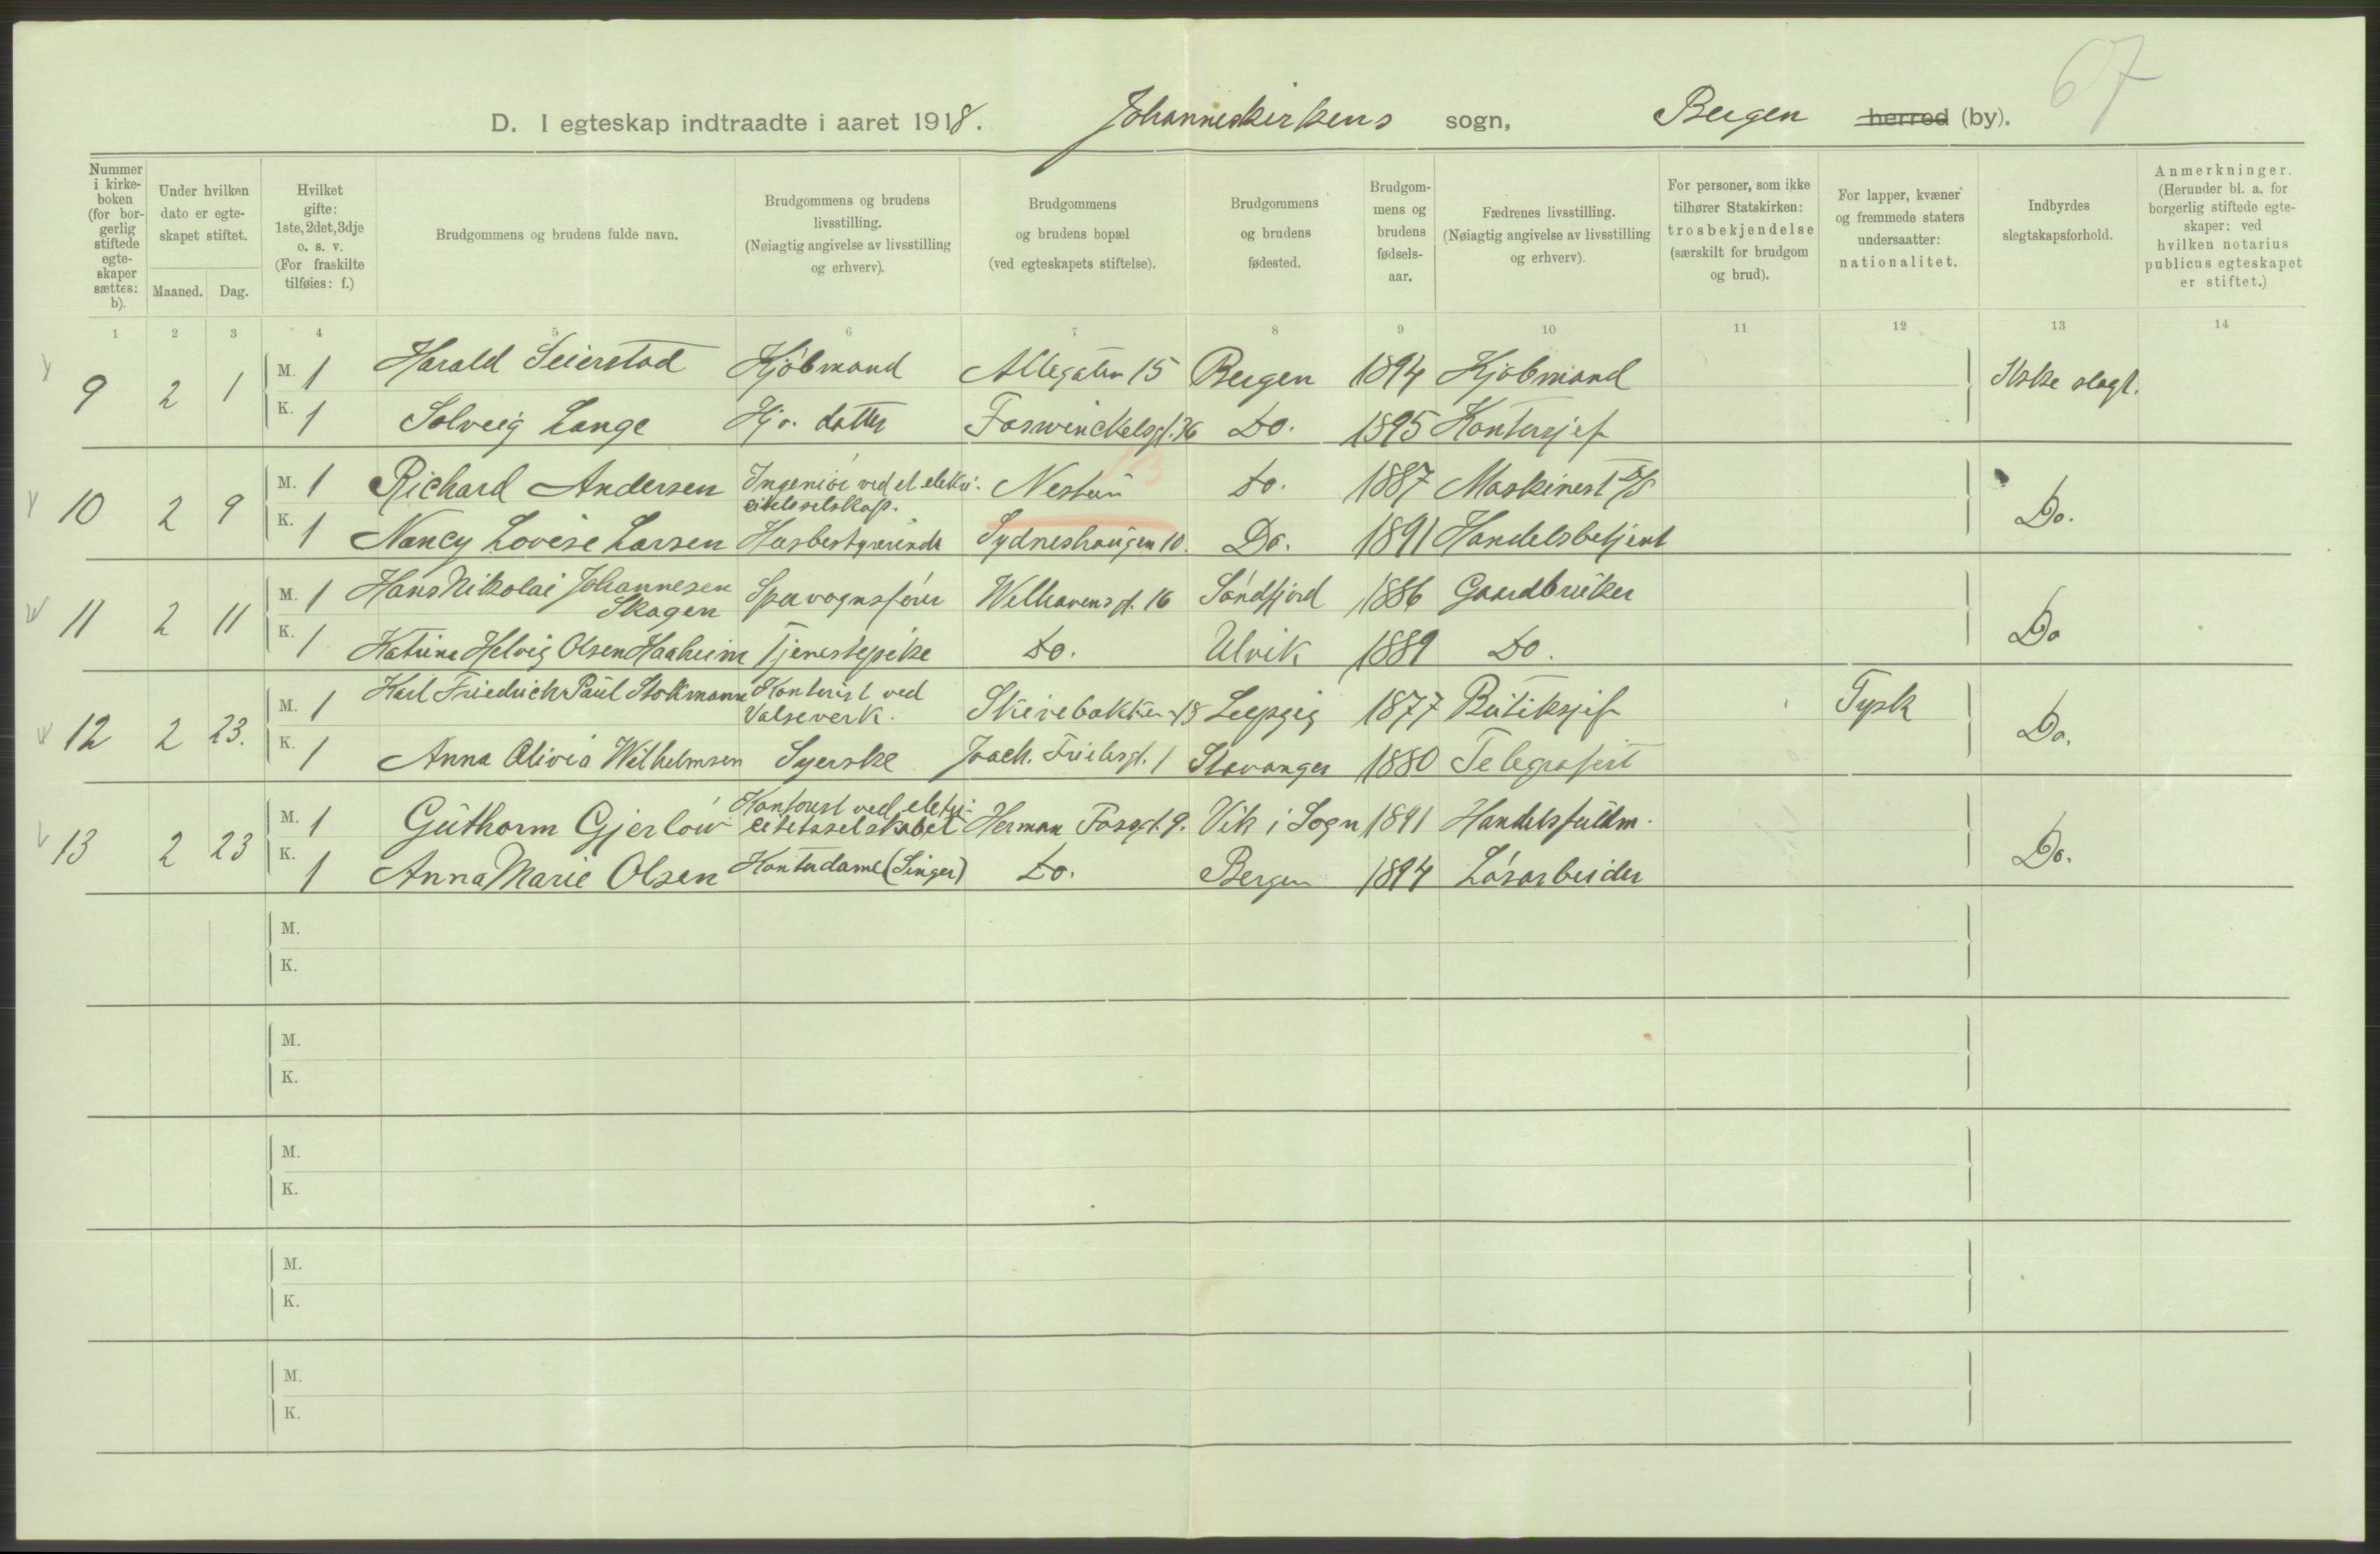 67
D. I egteskap indtraadte i aaret 1918. Johanneskirkens sogn, Bergen herred (by).
Nummer i kirke-boken (for bor-gerlig stiftede egte-skaper sættes: b).
Under hvilken dato er egte-skapet stiftet.
Maaned. Dag.
Hvilket gifte: 1ste, 2det, 3dje o. s. v. (For fraskilte tilføies: f.)
Brudgommens og brudens fulde navn.
Brudgommens og brudens livsstilling. (Nøiagtig angivelse av livsstilling og erhverv).
Brudgommens og brudens bopæl (ved egteskapets stiftelse).
Brudgommens og brudens fødested.
Brudgom-mens og brudens fødsels-aar.
Fædrenes livsstilling. (Nøiagtig angivelse av livsstilling og erhverv).
For personer, som ikke tilhører Statskirken: trosbekjendelse (særskilt for brudgom og brud).
For lapper, kvæner og fremmede staters undersaatter: nationalitet.
Indbyrdes slegtskapsforhold.
Anmerkninger. (Herunder bl. a. for borgerlig stiftede egte-skaper: ved hvilken notarius publicus egteskapet er stiftet.)
1 2 3 4 5 6 7 8 9 10 11 12 13 14
9 2 1 M. 1 Harald Seierstad Kjøbmand Allegaten 15 Bergen 1894 Kjøbmand Ikke slegt.
K. 1 Solveig Lange Hjv. datter Foswinckelsgt. 36 Do. 1895 Kontorsjef
10 2 9 M. 1 Richard Andersen Ingeniør ved et elektri-citetsselskap. Nestun Do. 1887 Maskinest S/S Do.
K. 1 Nancy Lovise Larsen Husbestyrerinde Sydneshaugen 10. Do. 1891 Handelsbetjent
11 2 11 M. 1 Hans Nikolai Johannesen Skagen Sporvognsfører Welhavensgt. 16 Søndfjord 1886 Gaardbruker Do
K. 1 Katrina Helvig Olsen Haaheim Tjenestepike Do. Ulvik 1889 Do.
12 2 23. M. 1 Karl Friedrich Paul Stokmann Kontorist ved Valseverk. Skivebakken 18 Leipzig 1877 Butiksjef Tysk Do.
K. 1 Anna Olivia Wilhelmsen Syerske Joach. Frielesgt. 1 Stavanger 1880 Telegrafist
13 2 23 M. 1 Guthorm Gjerløw Kontorist ved elektri-citetsselskabet Herman Fossgt. 9. Vik i Sogn 1891 Handelsfuldm. Do.
K. 1 Anna Marie Olsen Kontordame (Singer) Do. Bergen 1894 Løsarbeider
M.
K.
M.
K.
M.
K.
M.
K.
M.
K.